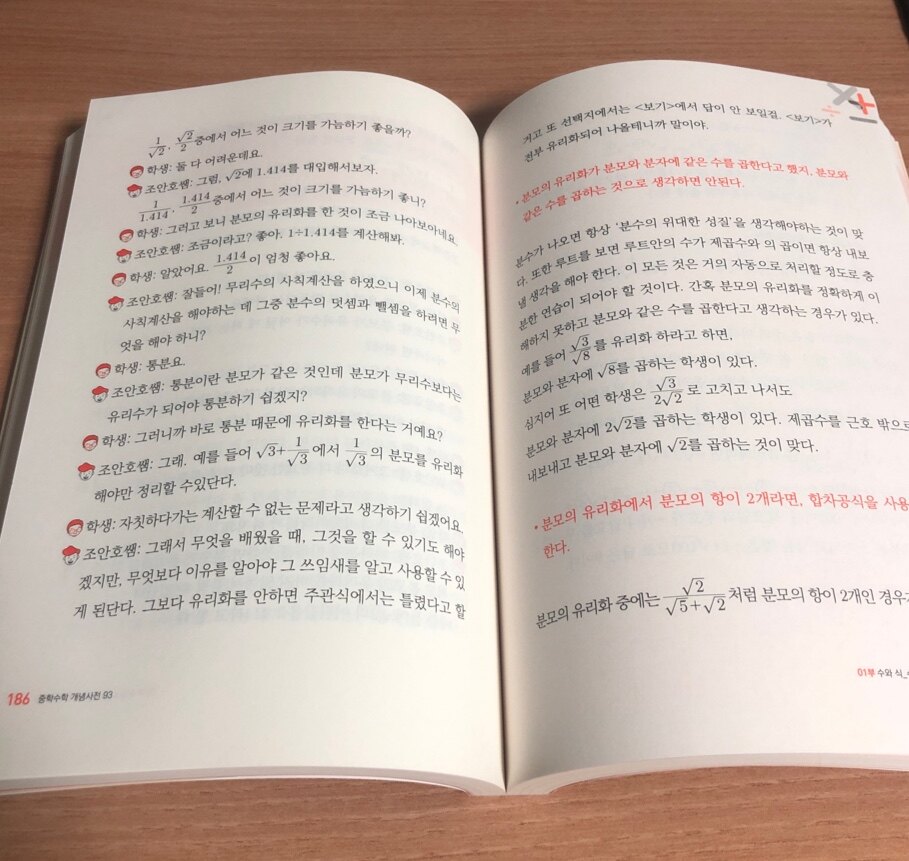 1/√2, √2/2 중에서 어느 것이 크기를 가늠하기 좋을까?
학생: 둘 다 어려운데요.
조안호쌤: 그럼, √2에 1.414를 대입해서보자.
1/1.414, 1.414/2 중에서 어느 것이 크기를 가늠하기 좋니?
학생: 그러고 보니 분모의 유리화를 한 것이 조금 나아보아네요.
조안호쌤: 조금이라고? 좋아. 1÷1.414를 계산해봐.
학생: 알았어요. 1.414/2 이 엄청 좋아요.
조안호쌤: 잘들어! 무리수의 사칙계산을 하였으니 이제 분수의
사칙계산을 해야하는 데 그중 분수의 덧셈과 뺄셈을 하려면 무
엇을 해야 하니?
학생: 통분요.
조안호쌤: 통분이란 분모가 같은 것인데 분모가 무리수보다는
유리수가 되어야 통분하기 쉽겠지?
학생: 그러니까 바로 통분 때문에 유리화를 한다는 거예요?
조안호쌤: 그래. 예를 들어 √3+1/√3 에서 1/√3 의 분모를 유리화
해야만 정리할 수있단다.
학생: 자칫하다가는 계산할 수 없는 문제라고 생각하기 쉽겠어요.
조안호쌤: 그래서 무엇을 배웠을 때, 그것을 할 수 있기도 해야
겠지만, 무엇보다 이유를 알아야 그 쓰임새를 알고 사용할 수 있
게 된단다. 그보다 유리화를 안하면 주관식에서는 틀렸다고 할
186 중학수학 개념사전 93
거고 또 선택지에서는 <보기>에서 답이 안 보일걸. <보기>가
전부 유리화되어 나올테니까 말이야.
• 분모의 유리화가 분모와 분자에 같은 수를 곱한다고 했지, 분모와
같은 수를 곱하는 것으로 생각하면 안된다.
분수가 나오면 항상 '분수의 위대한 성질'을 생각해야하는 것이 맞
다. 또한 루트를 보면 루트안의 수가 제곱수와 의 곱이면 항상 내보
낼 생각을 해야 한다. 이 모든 것은 거의 자동으로 처리할 정도로 충
분한 연습이 되어야 할 것이다. 간혹 분모의 유리화를 정확하게 이
해하지 못하고 분모와 같은 수를 곱한다고 생각하는 경우가 있다.
예를 들어 √3/√8 를 유리화 하라고 하면,
분모와 분자에 √8를 곱하는 학생이 있다.
심지어 또 어떤 학생은 √3/2√2 로 고치고 나서도
분모와 분자에 2√2를 곱하는 학생이 있다. 제곱수를 근호 밖으로
내보내고 분모와 분자에 √2를 곱하는 것이 맞다.
• 분모의 유리화에서 분모의 항이 2개라면, 합차공식을 사용
한다.
분모의 유리화 중에는 √2/(√5+√2) 처럼 분모의 항이 2개인 경우
01부 수와 식